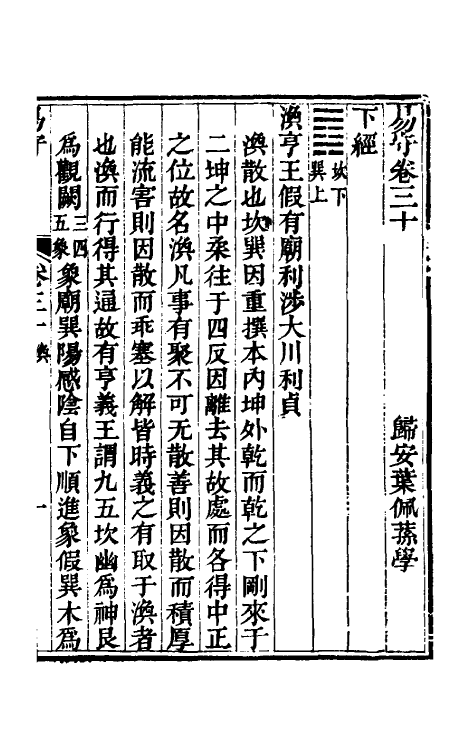 易守卷三十
歸安葉佩蓀學
下經
坎下
巽上
渙亨王假有廟利涉大川利貞
渙散也坎巽因重撰本內坤外乾而乾之下剛來于
二坤之中柔往于四反因離去其故處而各得中正
之位故名渙凡事有聚不可无散善則因散而積厚
能流害則因散而乖塞以解皆時義之有取于渙者
也渙而行得其通故有亨義王謂九五坎幽爲神艮
爲觀闕三四五象象廟巽陽感陰自下順進象假巽木爲
易守
卷三十 渙
一